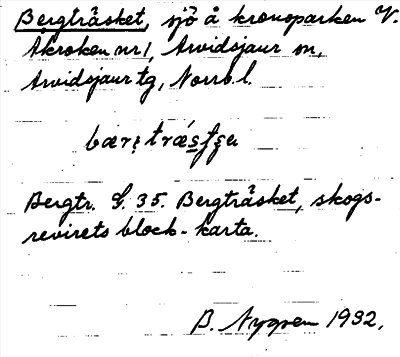 Bergträsket, sjö å kronoparken V.
Akroken nr 1, Arvidsjaur sn,
Arvidsjaur tg, Norrb.l.
Bergtr. G. 35. Bergträsket, skogs-
revirets block-karta.
B. Nygren 1932.